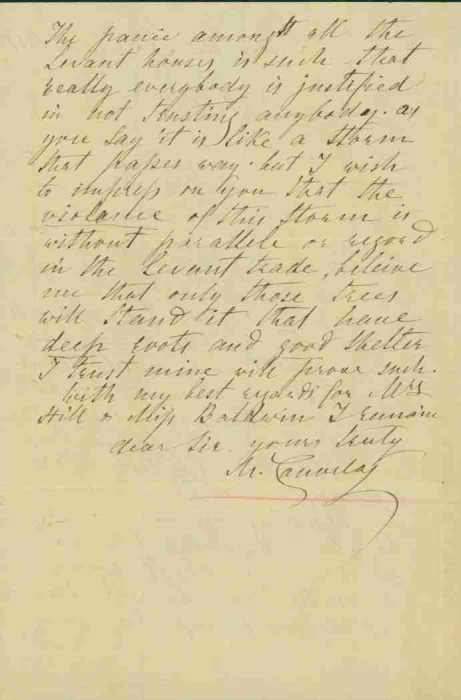 The panic amongst all the
Levant houses is such that
really everybody is justified
in not trusting anybody. as
you say 'it is like a storm
that passes way. but I wish
to impress on you that the
violance of this storm is
without parallele or regord
in the Levant trade, beleive
me that only those trees
will stand it that have
deep roots and good shelter
I trust mine will prove such.
With my best regards for Mrs
Hill & Miss Baldwin I remain
dear Sir yours truly